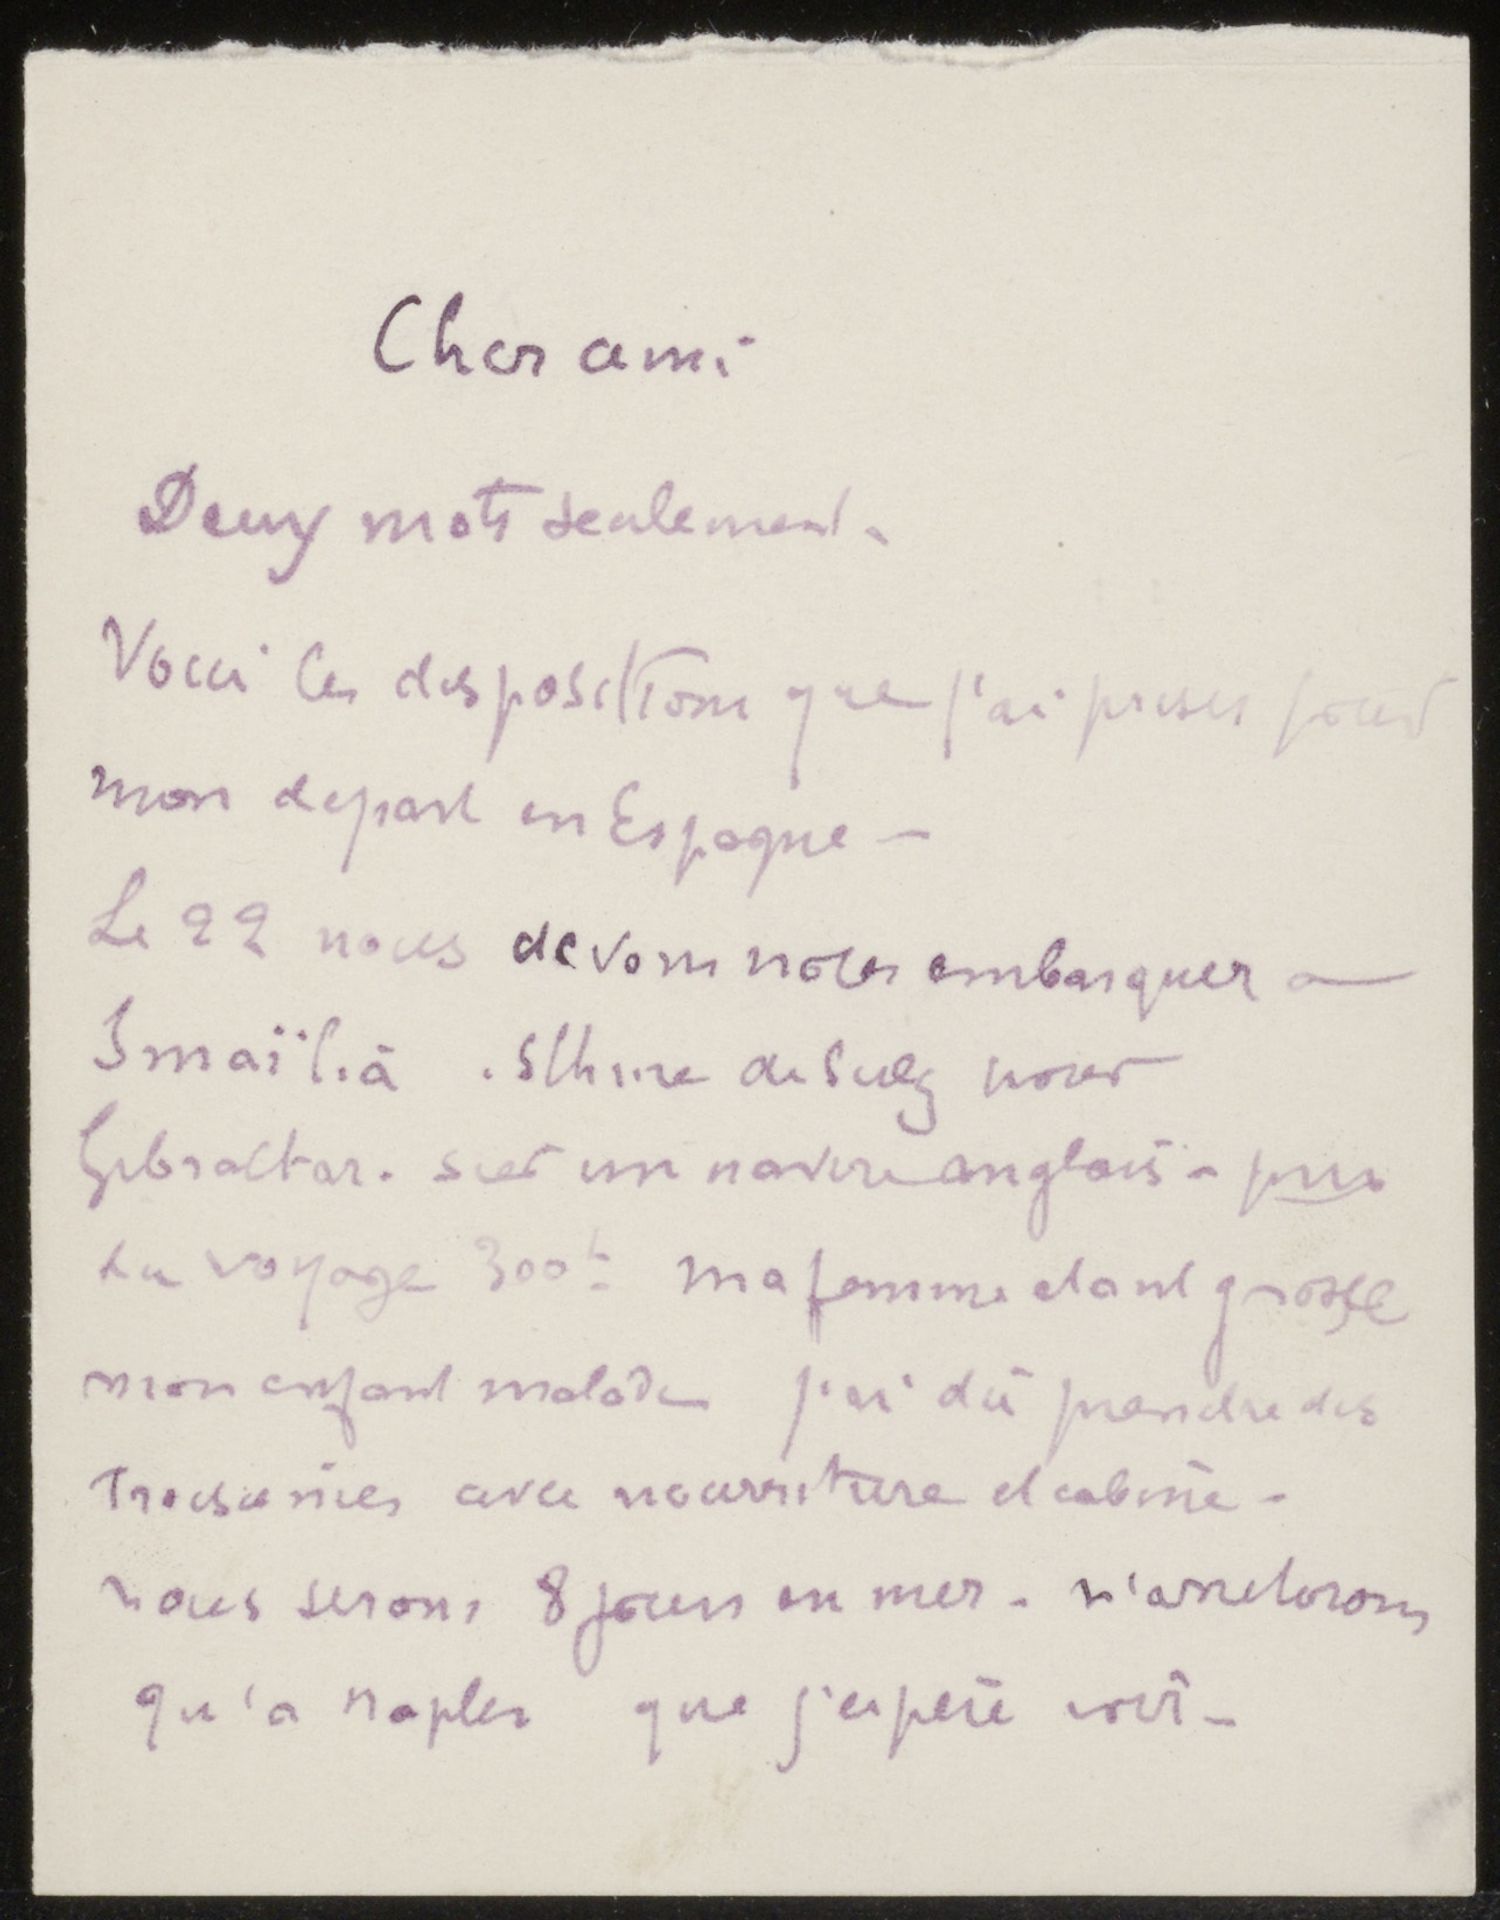 Cher ami
Deux mots seulement.
Voici les dispositions que j'ai prises pour
mon depart en Espagne —
Le 22 nous devons nous embarquer a
Ismaïlia isthme de Suez pour
Gibraltar. sur un navire anglais - prix
du voyage 300f. ma femme etant grosse
mon enfant malade j'ai dû prendre des
troisièmes avec nourriture et cabine -
nous serons 8 jours en mer - n'arreterons
qu'a Naples que j'espere voir -